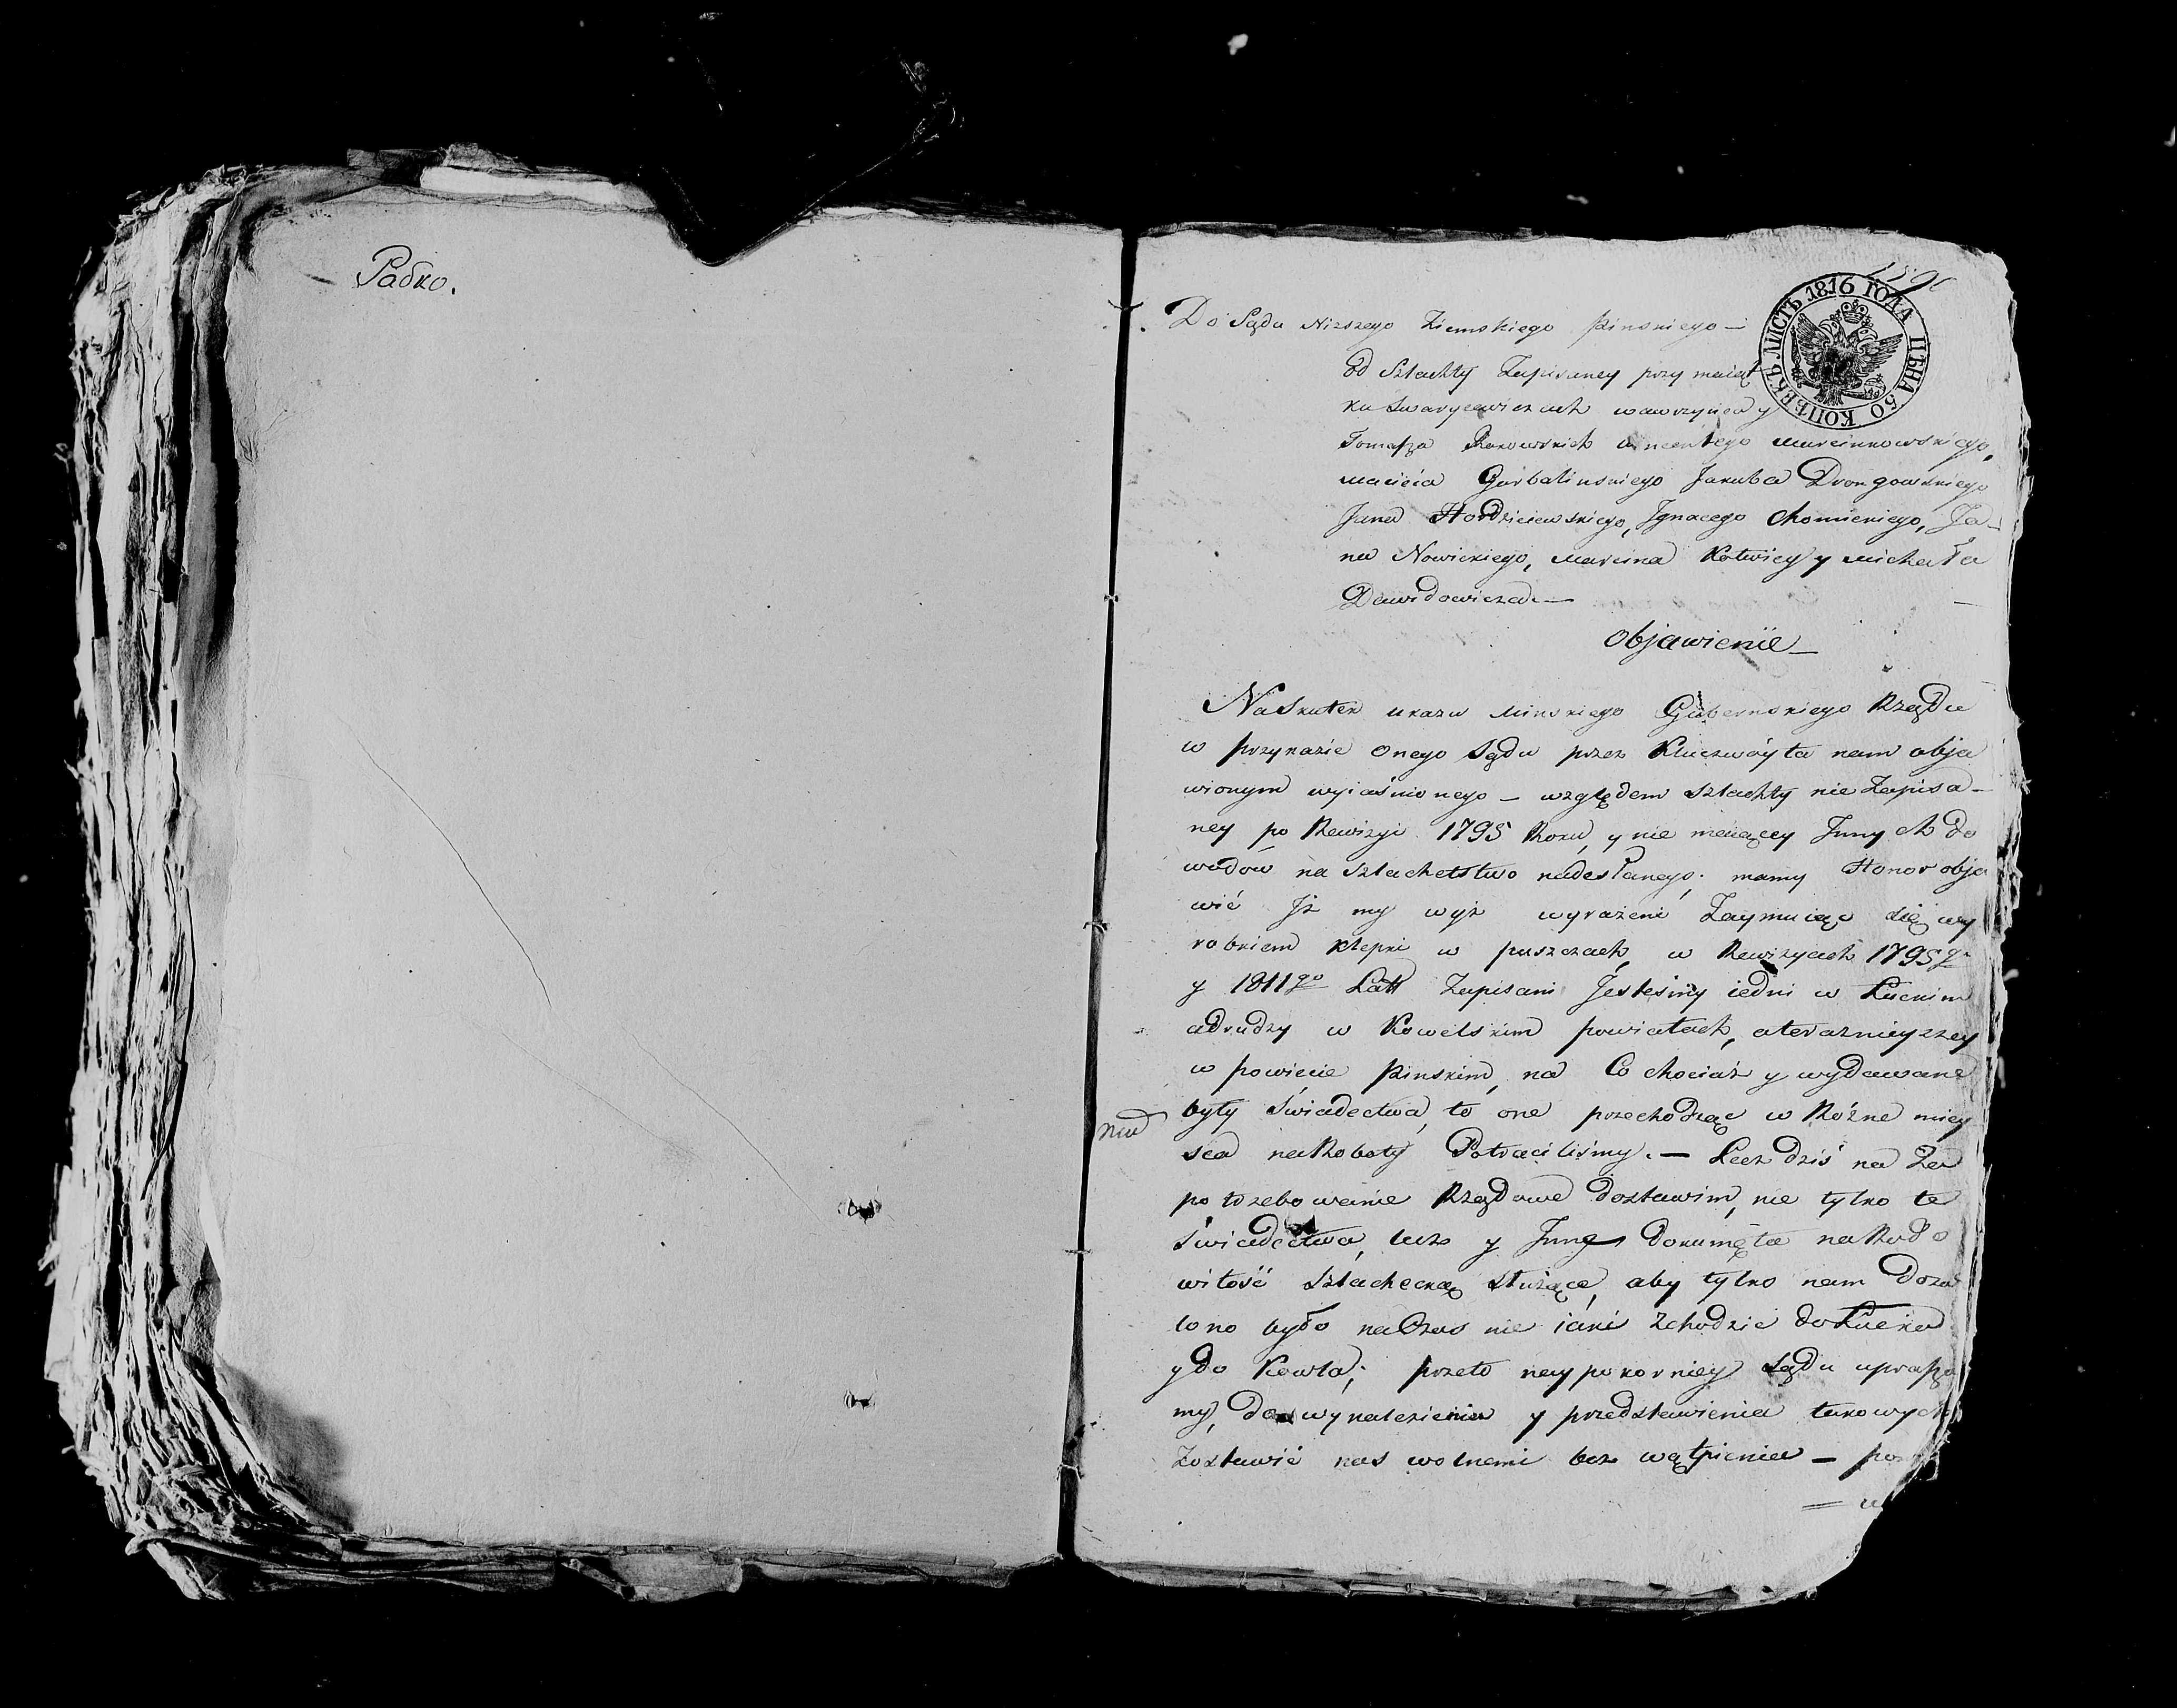 Радко.
Do Sądu Niższego Ziemskiego Pinskiego —
od Szlachty Zapisaney przy maiąt
ku Swarycewiczach wawrzyńca y
Tomasza Wincentego Marcinkowskiego,
Macieia Garbalinskiego Jakuba Drongowskiego
Jana Hordziciewskiego, Ignacego Chomickiego, Ja-
na Nowickiego, Marcina Kotwicy y Michała
Dawidowicza. —
Objawienie —
Na Skutek ukazu Minskiego Gubernskiego Rządu
w przykazie onego Sądu przez Kluczwóyta nam obja
wionym wyiaśnionego — względem szlachty nie Zapisa-
ney po Rewizyi 1795 Roku, y nie maiącey Jnnych do
wodów na szlachetstwo nadesłanego; mamy Honor obja
wić Jż my wyż wyrażeni Zaymuiąc się wy
robkiem klepki w puszczach, w Rewizyach 1795 go
y 1811 go Latt Zapisani Jesteśmy iedni w Łuckim
a drudzy w Kowelskim powiatach, a terazniejszey
w powiecie Pinskim, na Co chociaż y wydawane
były świadectwa, to one przechodząc w Różne miey
sca na Roboty Potraciliśmy. — Lecz dziś na Za
potrzebowanie Rządowe dostawim, nie tylko te
świadectwa, lecz y Jnne dokumęta na Rodo
witość szlachecką służące, aby tylko nam dozwo
lono było na Czas nie iaki Zchodzic do Łucka
y do Kowla; przeto naypokorniey Sądu uprasza
my, do wynalezienia y przedstawienia takowych
Zostawić nas wolnemi bez wątpienia —